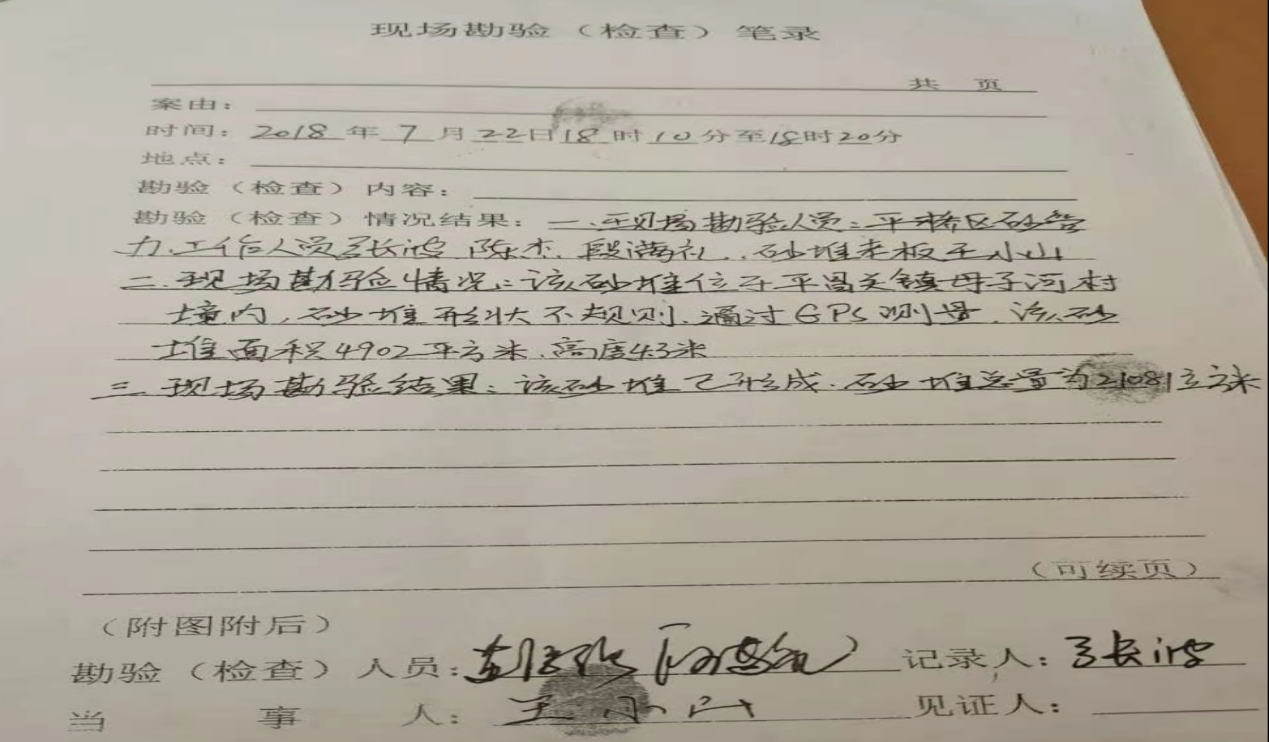 现场勘验（检查）笔录
共 页
案由：
时间：2018年7月22日18时10分至18时20分
地点：
勘验（检查）内容：
勘验（检查）情况结果：一、现场勘验人员：平桥区砂管
办工作人员张波 陈杰、段满礼、砂堆老板王小山
二、现场勘验情况：该砂堆位于平昌关镇母子河村
境内，砂堆形状不规则，通过GPS测量，该砂
堆面积4902平方米、高度4.3米
三、现场勘验结果：该砂堆已形成，砂堆总量为21081立方米
（可续页）
（附图附后）
勘验（检查）人员： 记录人：张波
当事人：王小山 见证人：